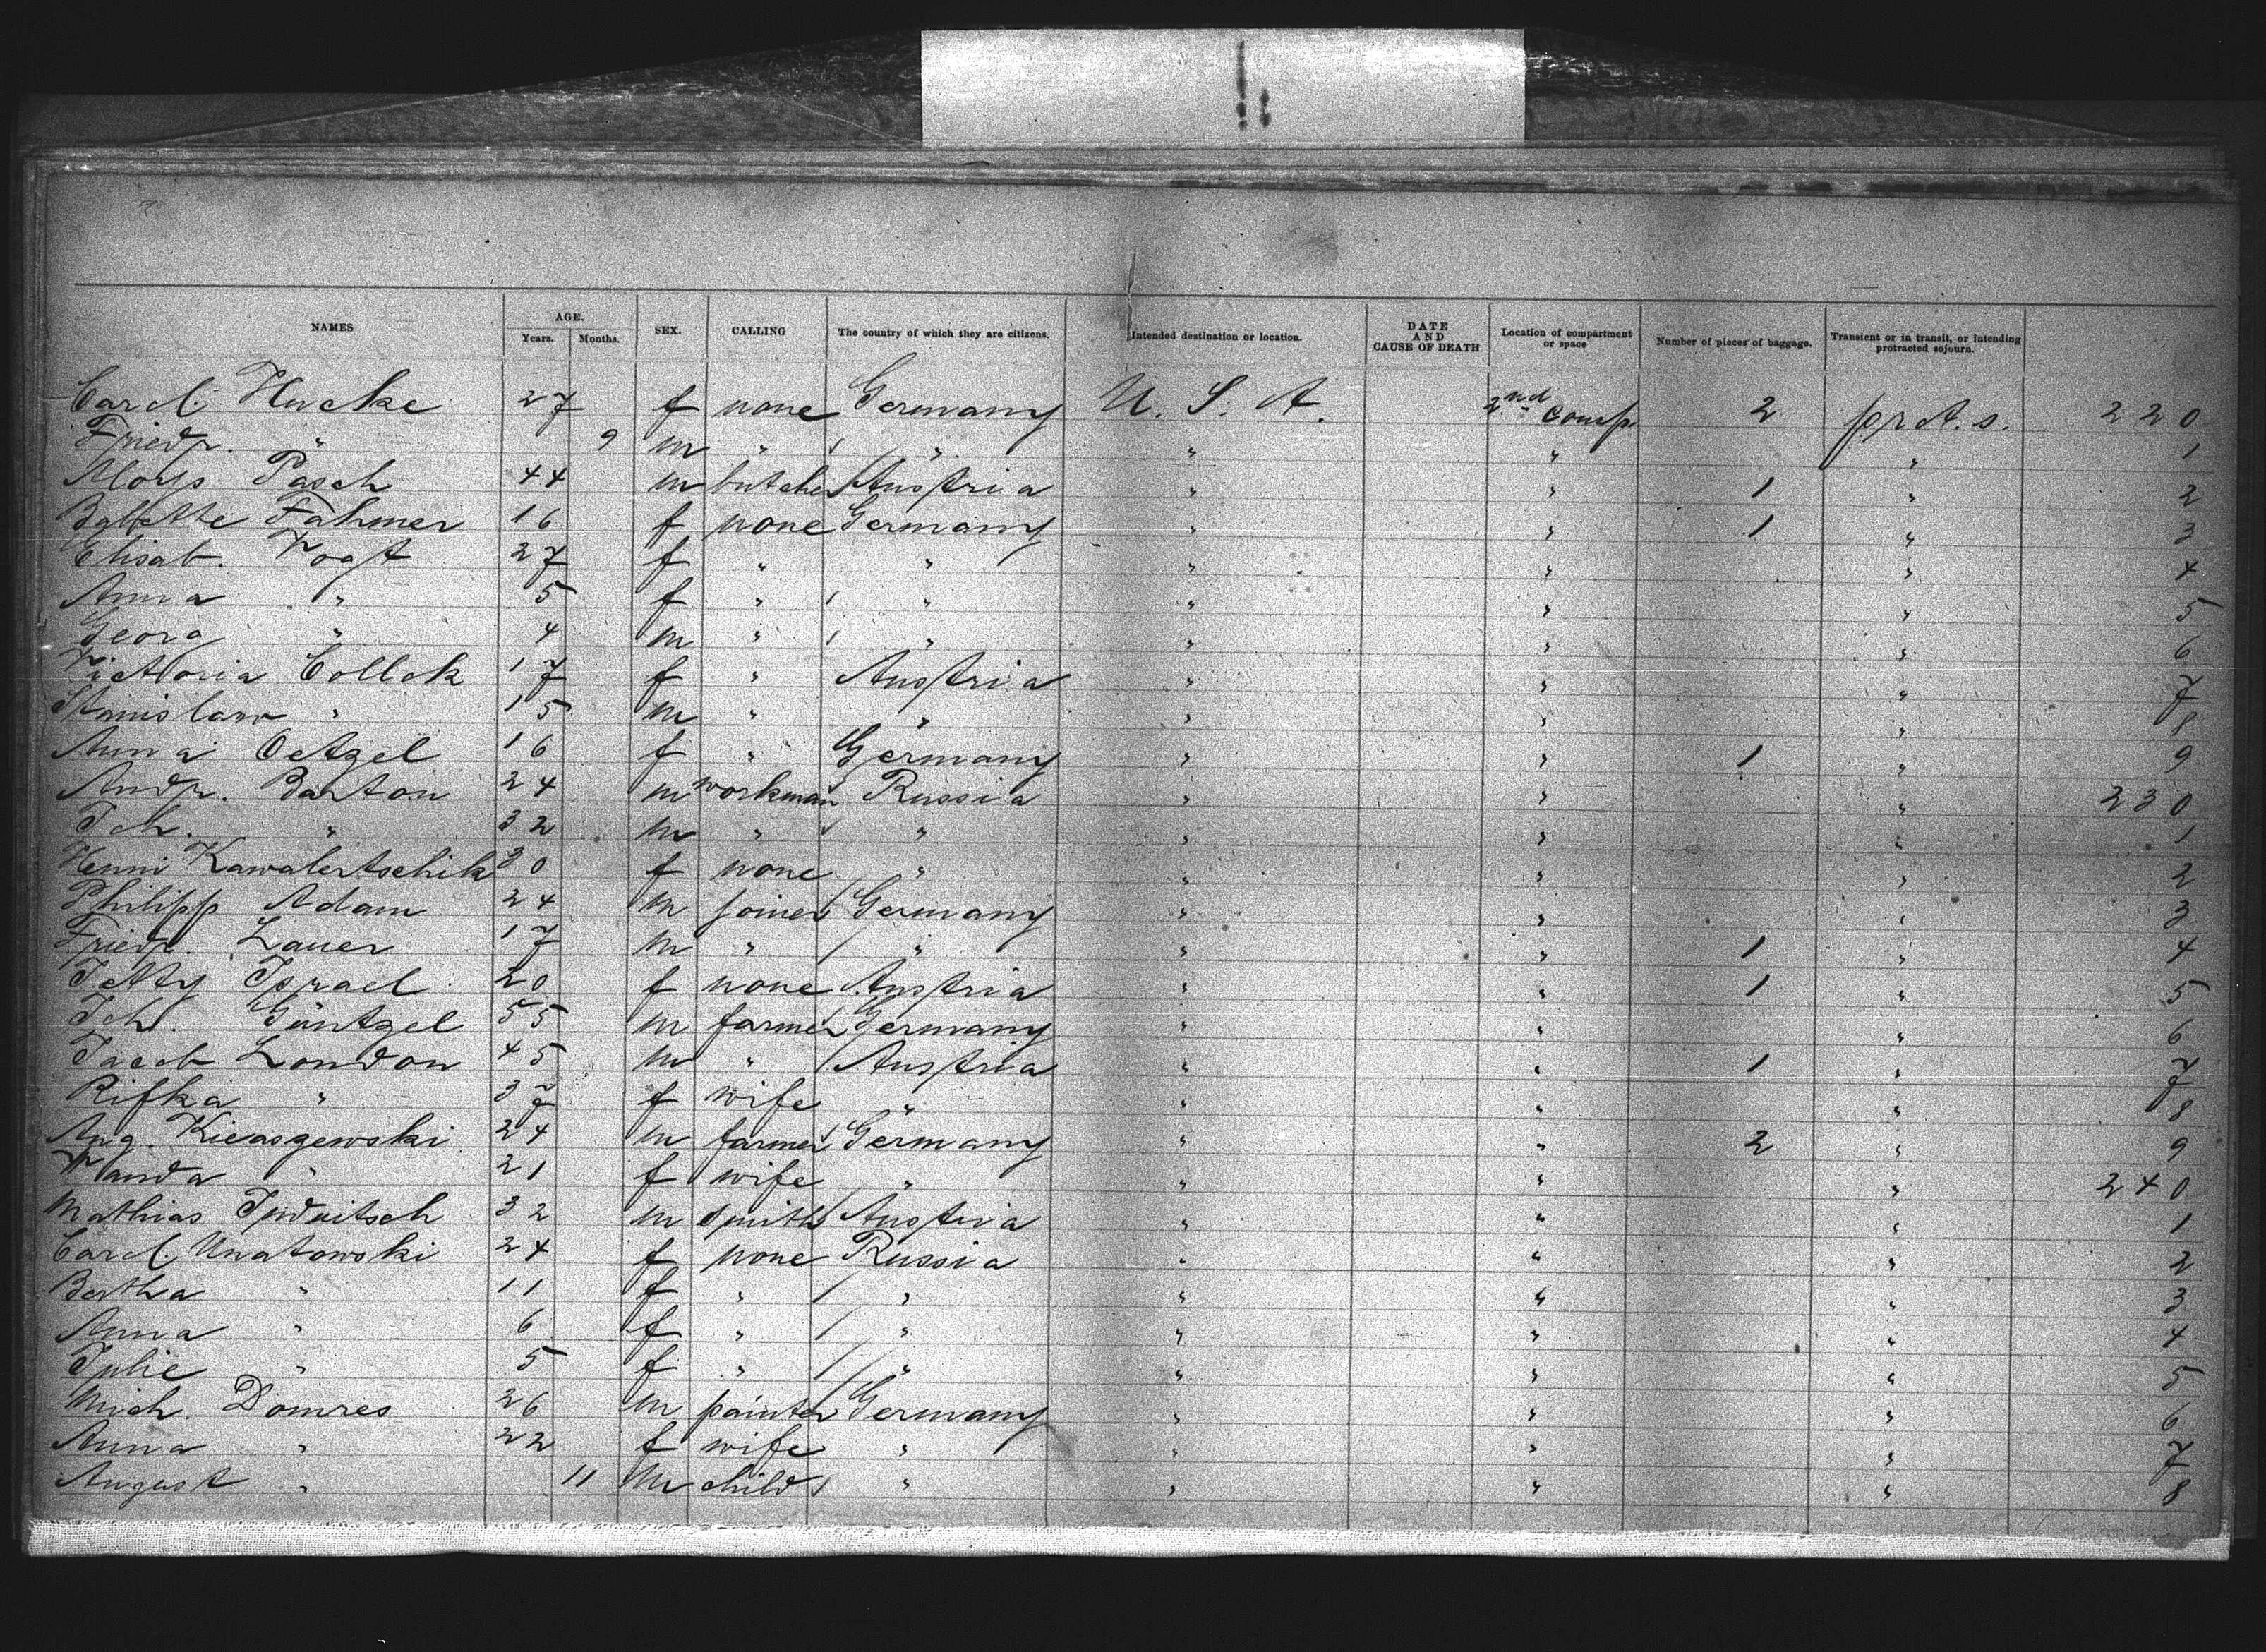 NAMES AGE. Years. Months. SEX. CALLING The country of which they are citizens. Intended destination or location. DATE AND CAUSE OF DEATH Location of compartment or space Number of pieces of baggage. Transient or in transit, or intending protracted sojourn.
Carol. Hucke 27 f none Germany U. S. A. 2nd comp. 2 prt. s. 220
Friedr. " 9 m " " " " " 1
Aloys Pasch 44 m butcher Austria " " 1 " 2
Babette Fahmer 16 f none Germany " " 1 " 3
Elisab. Vogt 27 f " " " " " 4
Anna " 5 f " " " " " 5
Georg " 4 m " " " " " 6
Victoria Collek 17 f " Austria " " " 7
Stanislaw " 15 m " " " " " 8
Anna Oetzel 16 f " Germany " " 1 " 9
Andr. Barton 24 m workman Russia " " " 230
Joh. " 32 m " " " " " 1
Henni Kawalertschik 30 f none " " " " 2
Philipp Adam 24 m joiner Germany " " " 3
Friedr. Lauer 17 m " " " " 1 " 4
Jetty Israel 20 f none Austria " " 1 " 5
Joh. Güntzel 55 m farmer Germany " " " 6
Jacob London 45 m " Austria " " 1 " 7
Rifka " 37 f wife " " " " 8
Aug. 24 m farmer Germany " " 2 " 9
Wanda " 21 f wife " " " " 240
Mathias 32 m smith Austria " " " 1
Carol. Unatowski 24 f none Russia " " " 2
Bertha " 11 f " " " " " 3
Anna " 6 f " " " " " 4
Julie " 5 f " " " " " 5
Mich. Domres 26 m painter Germany " " " 6
Anna " 22 f wife " " " " 7
August " 11 m child " " " " 8